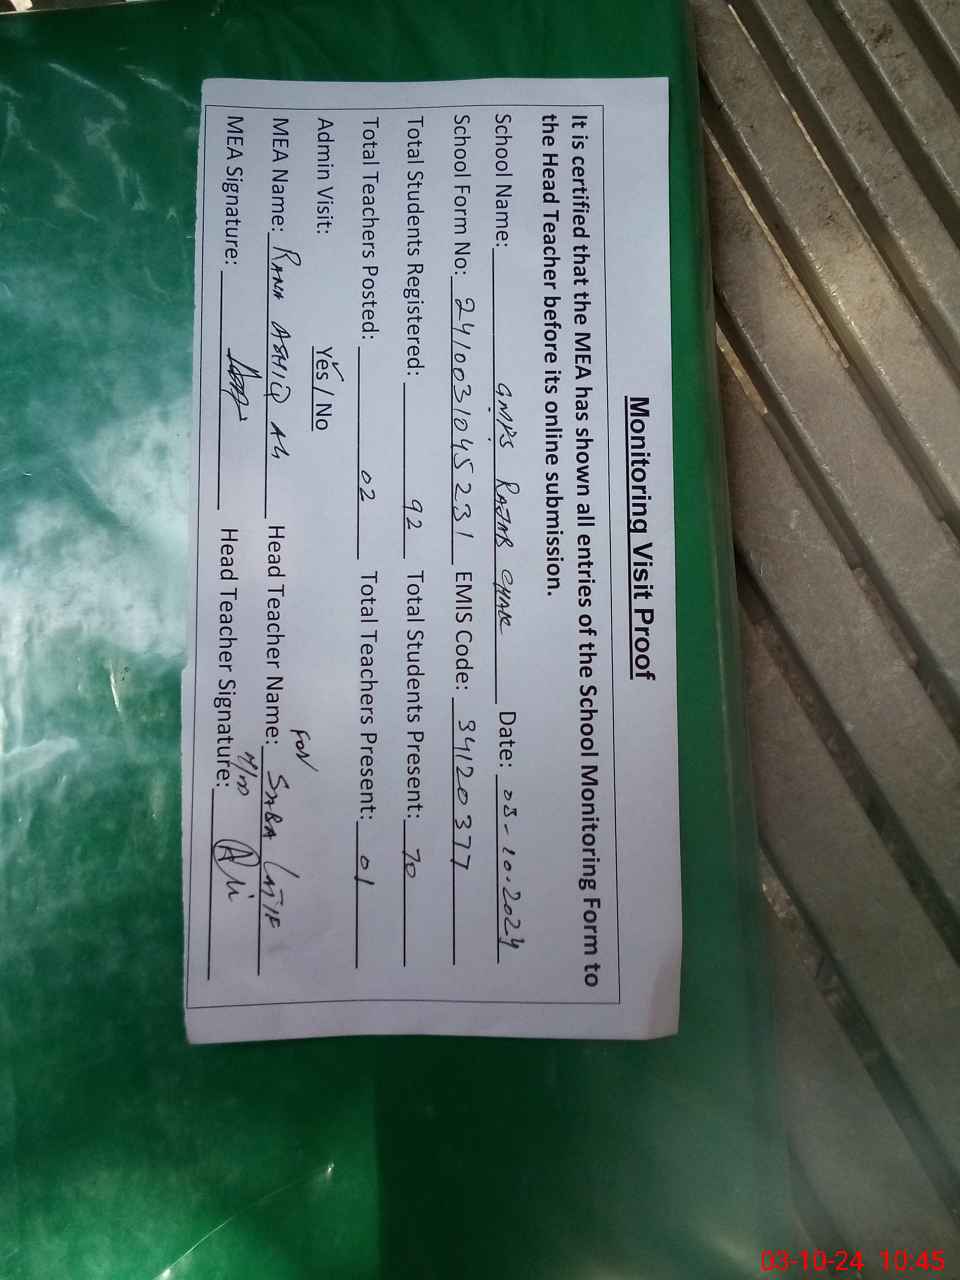 Monitoring Visit Proof
It is certified that the MEA has shown all entries of the School Monitoring Form to
the Head Teacher before its online submission.
School Name: GMPS RAJAB CHAK Date: 03-10-2024
School Form No: 2410031045231 EMIS Code: 34120377
Total Students Registered: 92 Total Students Present: 70
Total Teachers Posted: 02 Total Teachers Present: 01
Admin Visit: Yes / No
MEA Name: RANA ASHIQ Ali Head Teacher Name: SABA LATIF
For
MEA Signature: Head Teacher Signature:
03-10-24 10:45